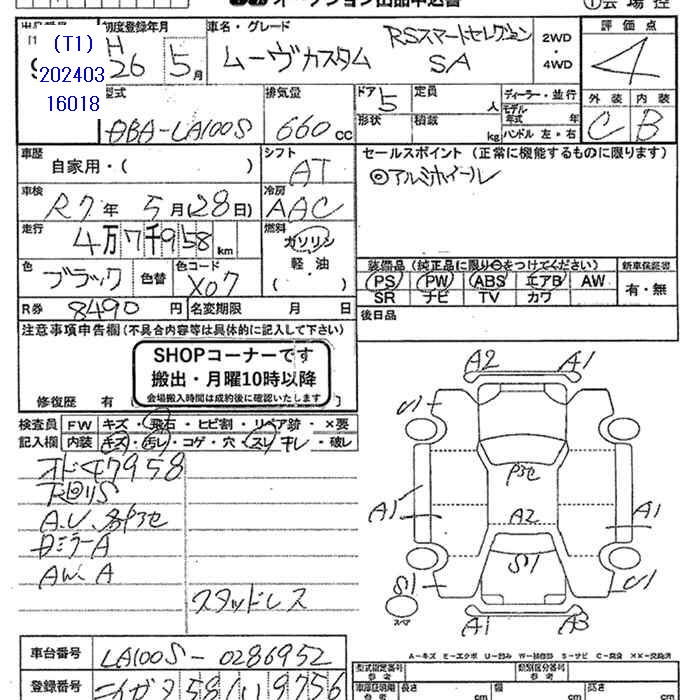 オークション出品申込書 ①会場控
初度登録年月 車名・グレード 評価点
(T1)
202403
16018
H26 5月 ムーヴカスタム RSスマートセレクション SA 2WD・4WD 4
型式 排気量 ドア 5 定員 人 ディーラー・並行 外装 内装
モデル年式 年
DBA-LA100S 660cc 形状 積載 kg ハンドル 左・右 C B
車歴 シフト セールスポイント(正常に機能するものに限ります)
自家用・( ) AT ◎アルミホイール
車検 冷房
R7年 5月(28日) AAC
走行 燃料
4万7千958km ガソリン
軽・油
( )
色 ブラック 色替 色コード X07
装備品(純正品に限り○をつけてください) 新車保証書
PS PW ABS エアB AW 有・無
SR ナビ TV カワ
R券 8490円 名変期限 月 日
後日品
注意事項申告欄(不具合内容等は具体的に記入して下さい)
SHOPコーナーです
搬出・月曜10時以降
会場搬入時間は成約後に確認いたします
修復歴 有
検査員 FW キズ・飛石・ヒビ割・リペア跡・×要
記入欄 内装 キズ・汚レ・コゲ・穴・スレ キレ・破レ
47958
A.U.
A
AW. A
スタッドレス
A2 A1
U1
A1 A2 A1
S1 S1 U1
スペア
A1 A3
A−キズ E−エクボ U−凹み W−補修跡 S−サビ C−腐食 XX−交換済
車台番号 LA100S-0286952
型式指定番号 参考 類別区分番号 参考
登録番号 58 9756
車庫証明用 参考 長さ cm 幅 cm 高さ cm